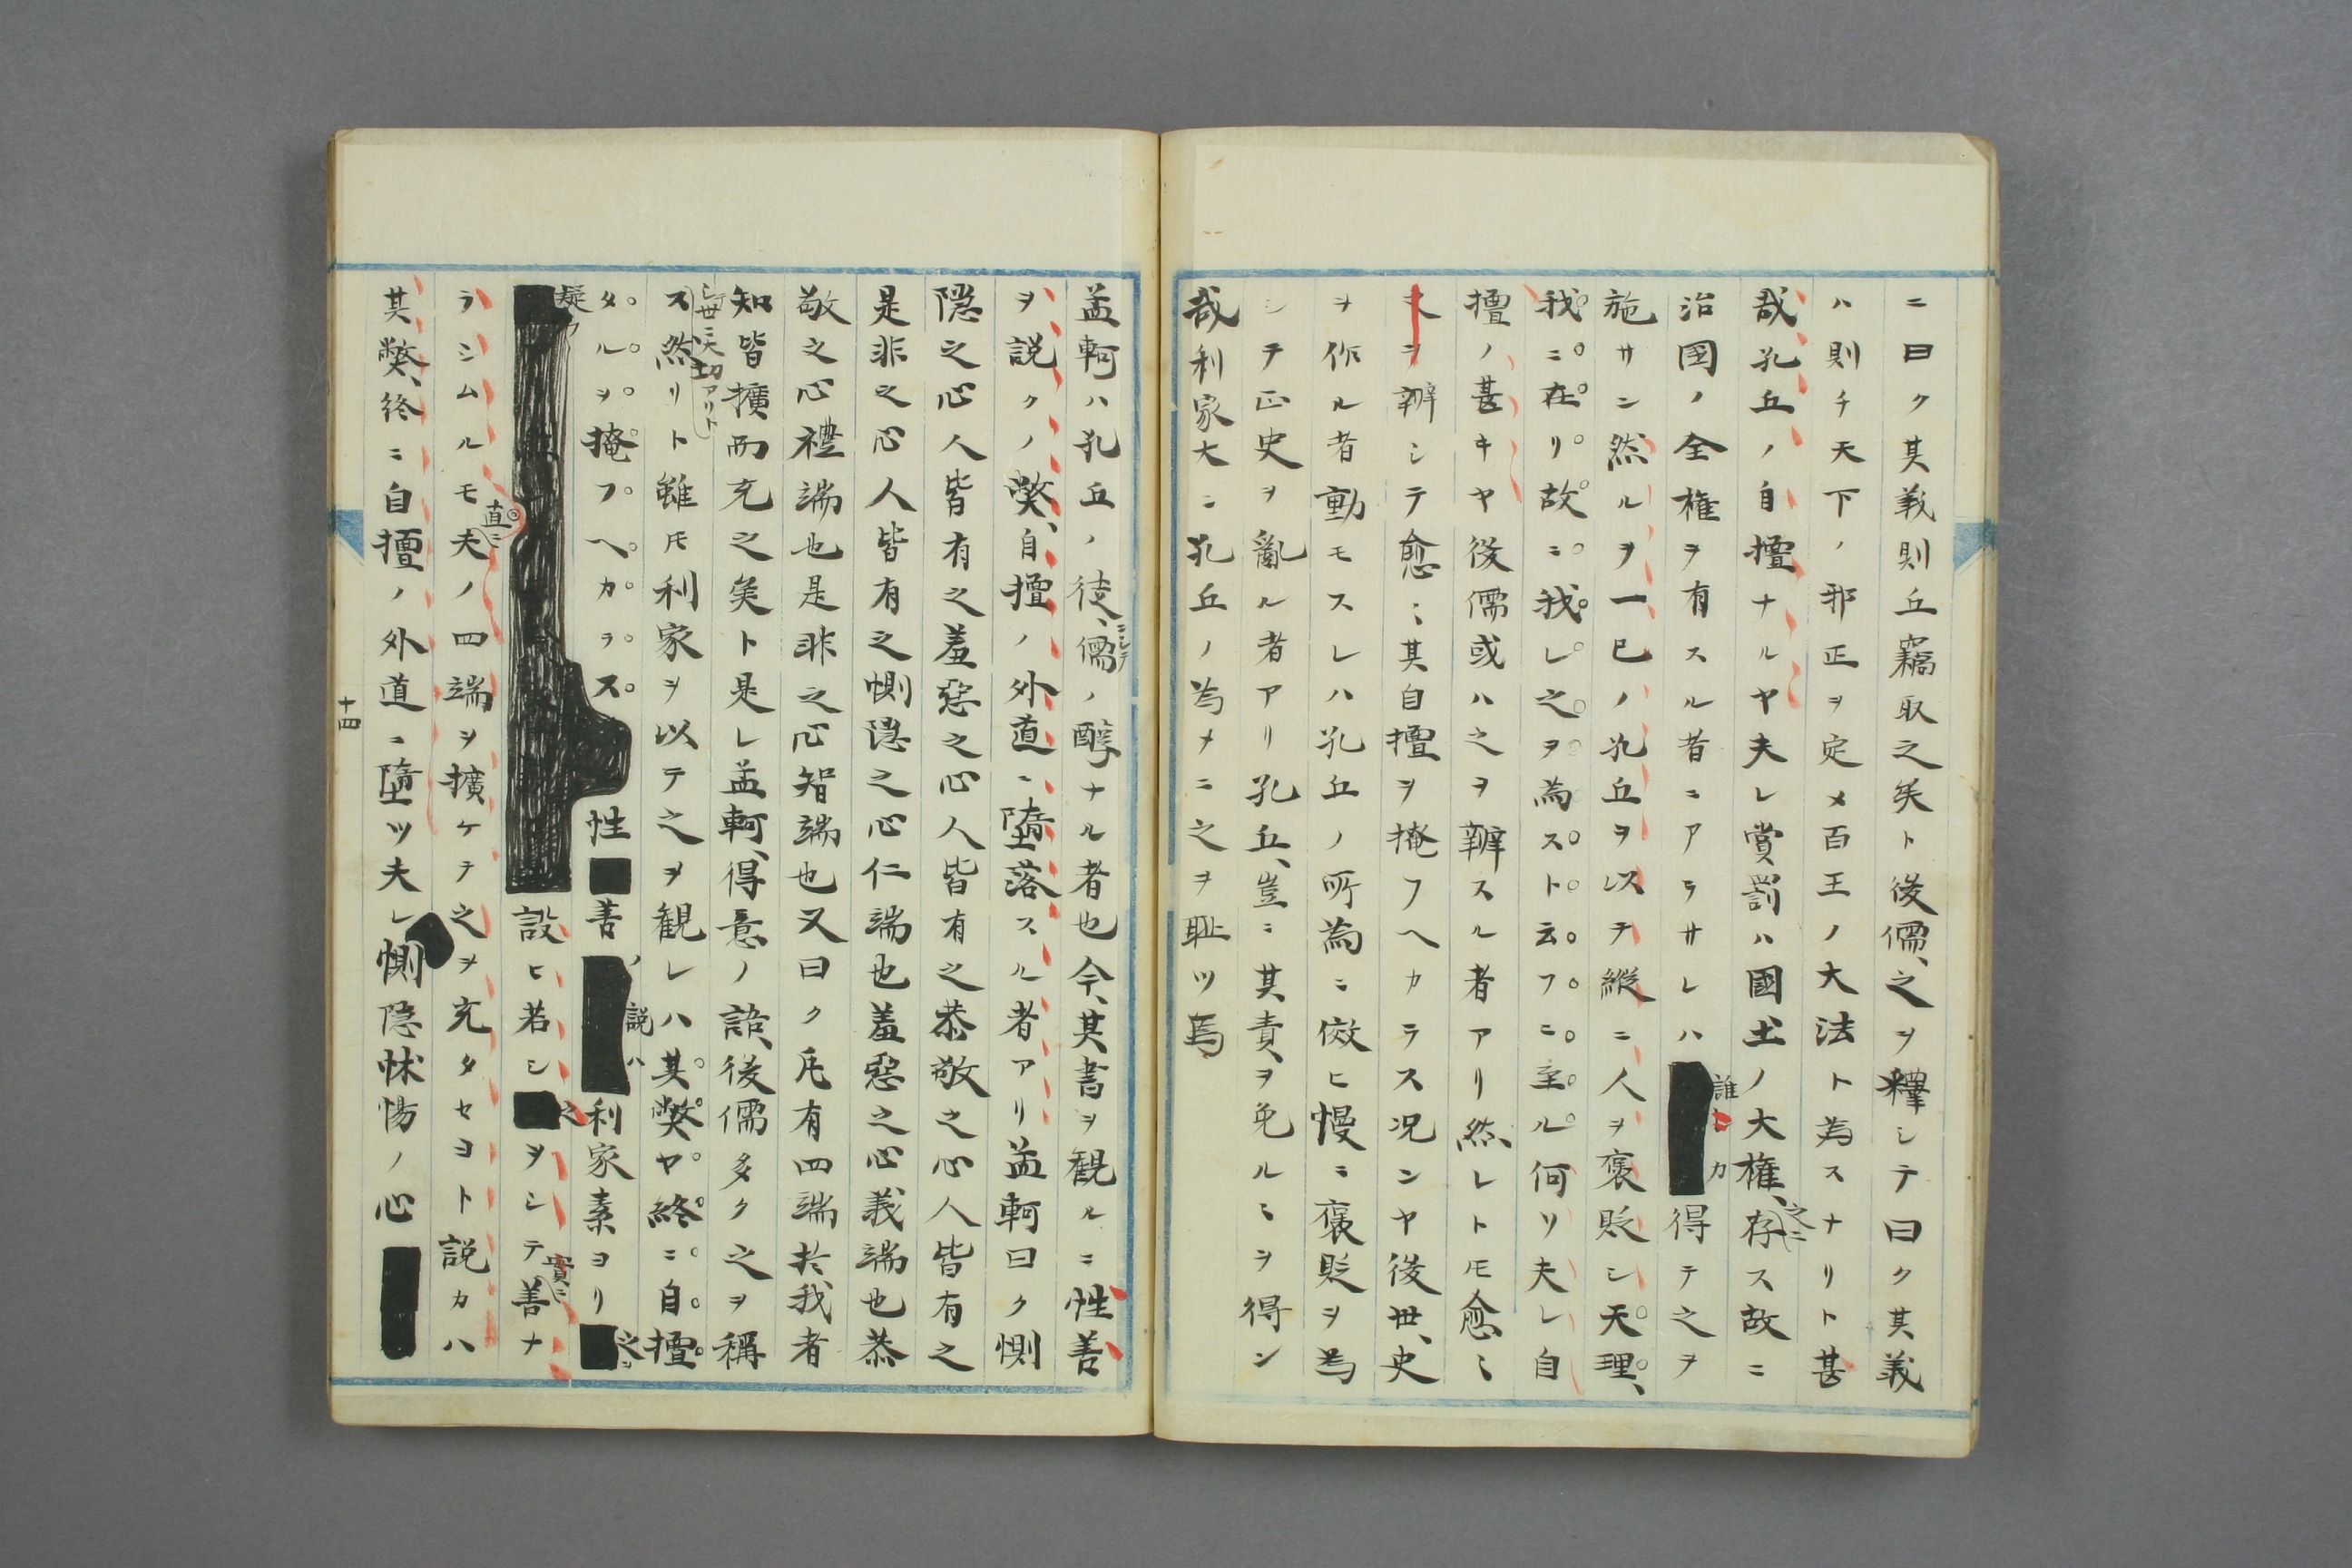 ニ曰ク其義則丘竊取之矣ト後儒、之ヲ釋シテ曰ク其義
ハ則チ天下ノ邪正ヲ定メ百王ノ大法ト為スナリト甚
哉孔丘ノ自擅ナルヤ夫レ賞罰ハ國土ノ大権、之ニ存ス故ニ
治國ノ全権ヲ有スル者ニアラサレハ誰カ得テ之ヲ
施サン然ルヲ一已ノ孔丘ヲ以テ縦ニ人ヲ褒貶シ天理、
我ニ在リ故ニ我レ之ヲ為スト云フニ至ル何ソ夫レ自
擅ノ甚キヤ後儒或ハ之ヲ辨スル者アリ然レトモ愈〻
之ヲ辨シテ愈〻其自擅ヲ掩フヘカラス况ンヤ後世、史
ヲ作ル者動モスレハ孔丘ノ所為ニ倣ヒ慢ニ褒貶ヲ為
シテ正史ヲ亂ル者アリ孔丘、豈ニ其責、ヲ免ルヽヲ得ン
哉利家大ニ孔丘ノ為メニ之ヲ耻ツ焉
孟軻ハ孔丘ノ徒、ニシテ儒ノ醇ナル者也今、其書ヲ観ルニ性善
ヲ説クノ獘、自擅ノ外道ニ墮落スル者アリ孟軻曰ク惻
隠之心人皆有之羞惡之心人皆有之恭敬之心人皆有之
是非之心人皆有之惻隠之心仁端也羞惡之心義端也恭
敬之心禮端也是非之心智端也又曰ク凡有四端於我者
知皆擴而充之矣ト是レ孟軻、得意ノ語、後儒多ク之ヲ稱
ス然リト雖モ利家ヲ以テ之ヲ観レハ其獘ヤ終ニ自擅
タルヲ掩フヘカラス性善ノ説ハ利家素ヨリ之ヲ
疑フ設ヒ若シ之ヲシテ實ニ善ナ
ラシムルモ直ニ夫ノ四端ヲ擴ケテ之ヲ充タセヨト説カハ
其獘、終ニ自擅ノ外道ニ墮ツ夫レ惻隠怵惕ノ心
十四